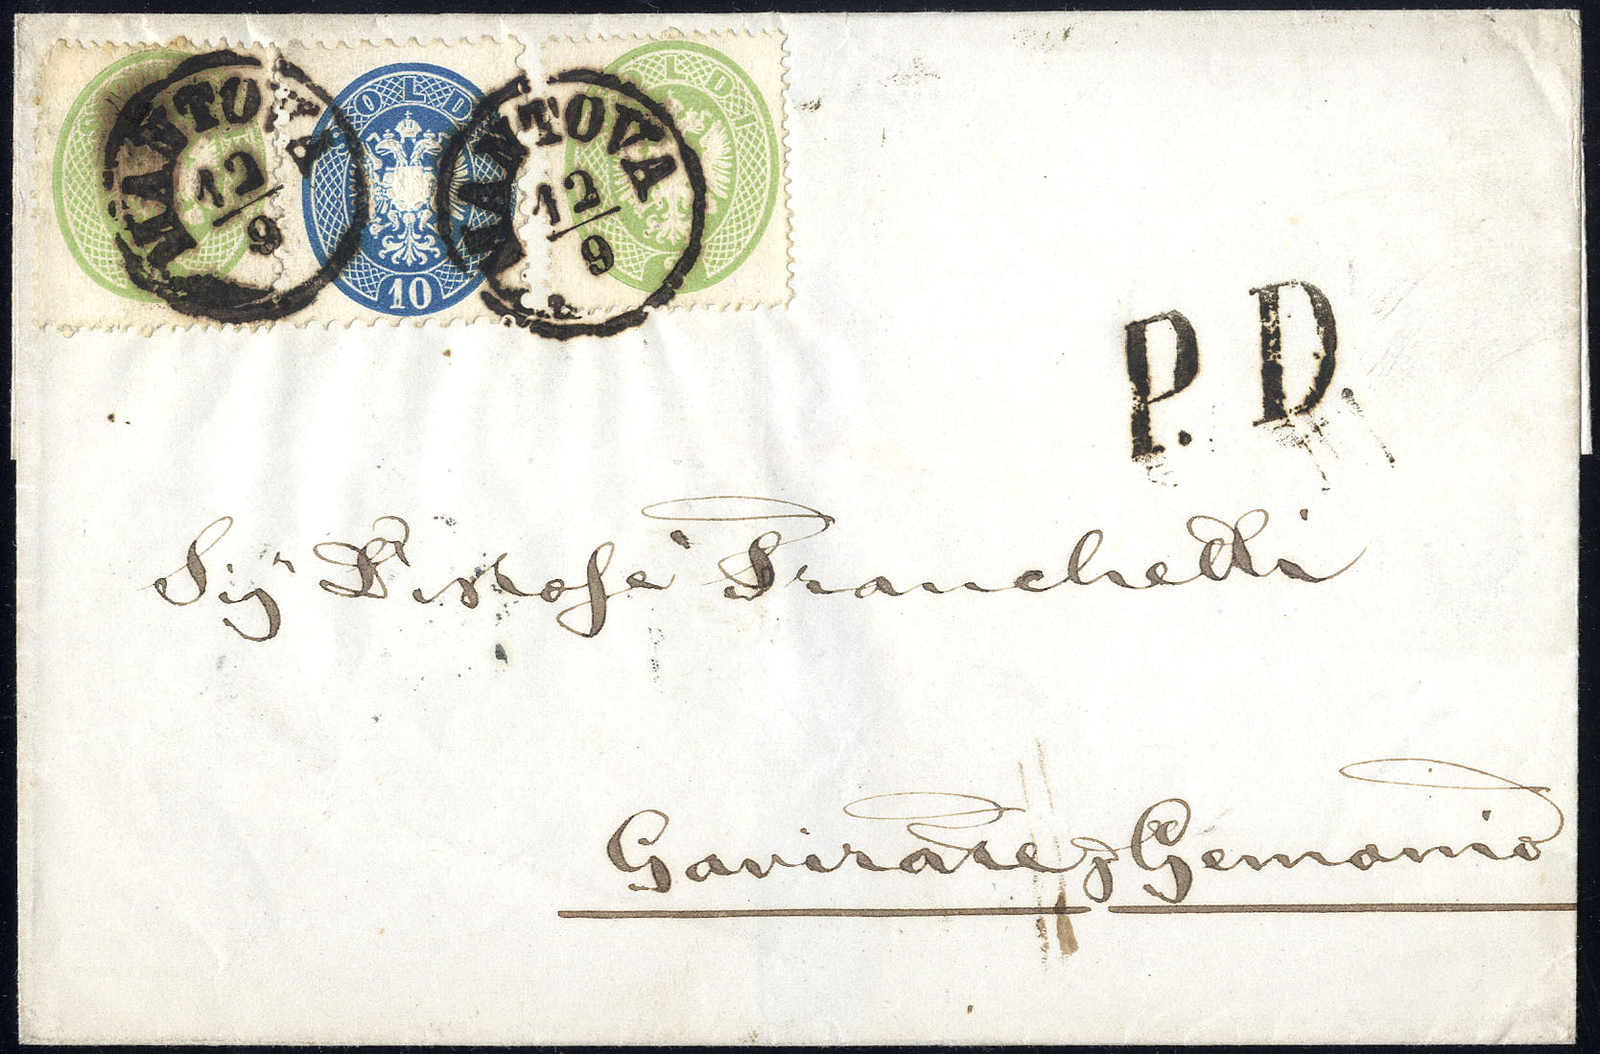 SOLDI
10
SOLDI
MANTOVA
12/9
MANTOVA
12/9
P. D.
Sigr Franchetti
Gavirate p Gemonio